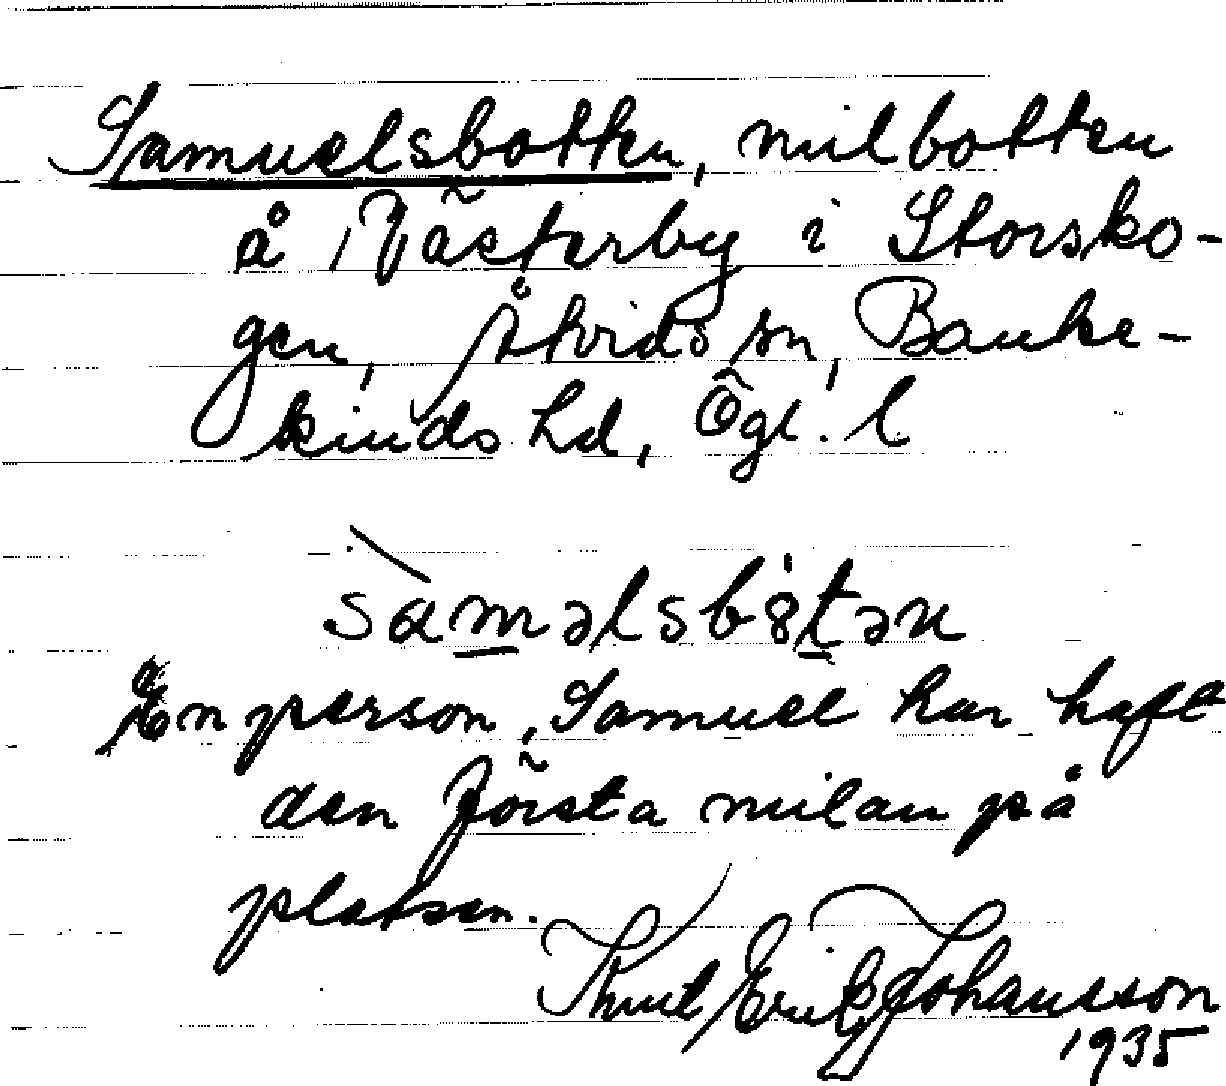 Samuelsbotten, milbotten
å Västerby i Storsko-
gen, Åtvids sn, Banke-
kinds hd, Ögl. l
sàməlsbȯtən
En person, Samuel har haft
den första milan på
platsen.
Knut Erik Johansson
1935